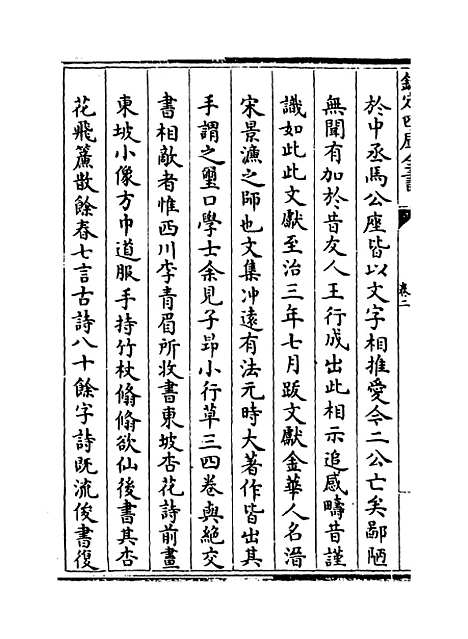 欽定四庫全書
卷二
於中丞馬公座皆以文字相推愛今二公亡矣鄙陋
無聞有加於昔友人王行成出此相示追感疇昔謹
識如此此文獻至治三年七月跋文獻金華人名溍
宋景濂之師也文集冲遠有法元時大著作皆出其
手謂之璽口學士余見子昂小行草三四卷與絶交
書相敵者惟西川李青眉所收書東坡杏花詩前畫
東坡小像方巾道服手持竹杖翛翛欲仙後書其杏
花飛簾散餘春七言古詩八十餘字詩既流俊書復